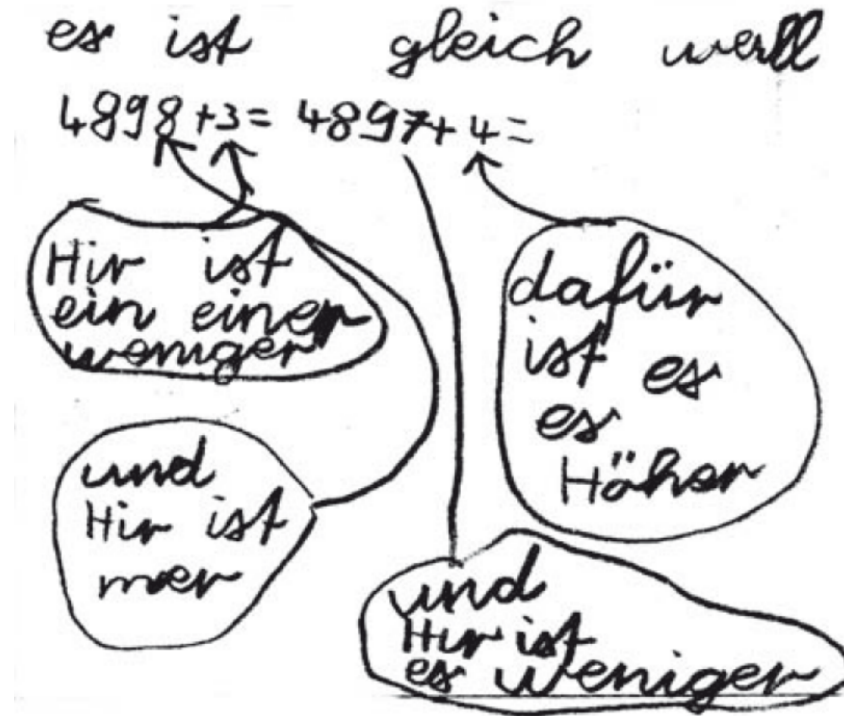 es ist gleich werll
4898+3= 4897+4=
Hir ist
ein einer
weniger
dafür
ist es
es
Höher
und
Hir ist
mer
und
Hir ist
es weniger